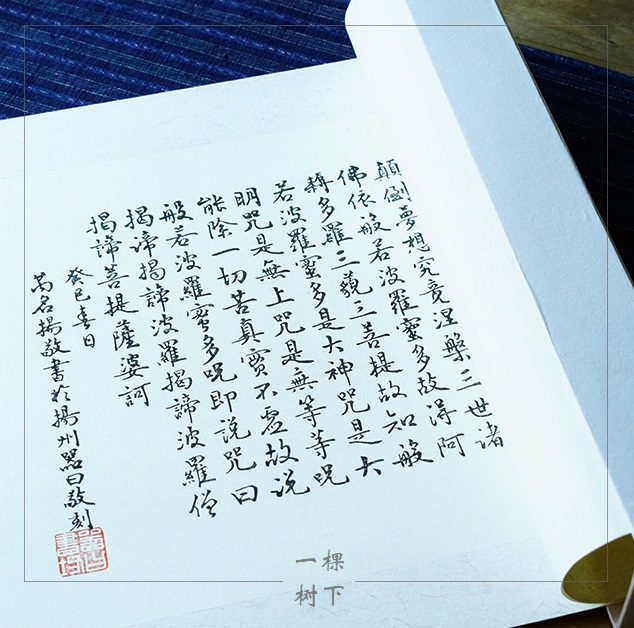 顛倒夢想究竟涅槃三世諸
佛依般若波羅蜜多故得阿
耨多羅三藐三菩提故知般
若波羅蜜多是大神咒是大
明咒是無上咒是無等等呪
能除一切苦真實不虛故說
般若波羅蜜多呪即說咒曰
揭諦揭諦波羅揭諦波羅僧
揭諦菩提薩婆訶
癸巳春日
名揚敬書於揚州器曰敬刻
一棵
树下